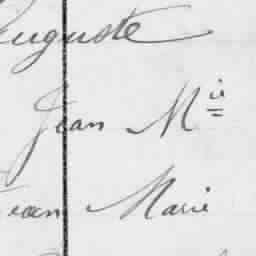 Auguste
Jean Mie
Jean Marie